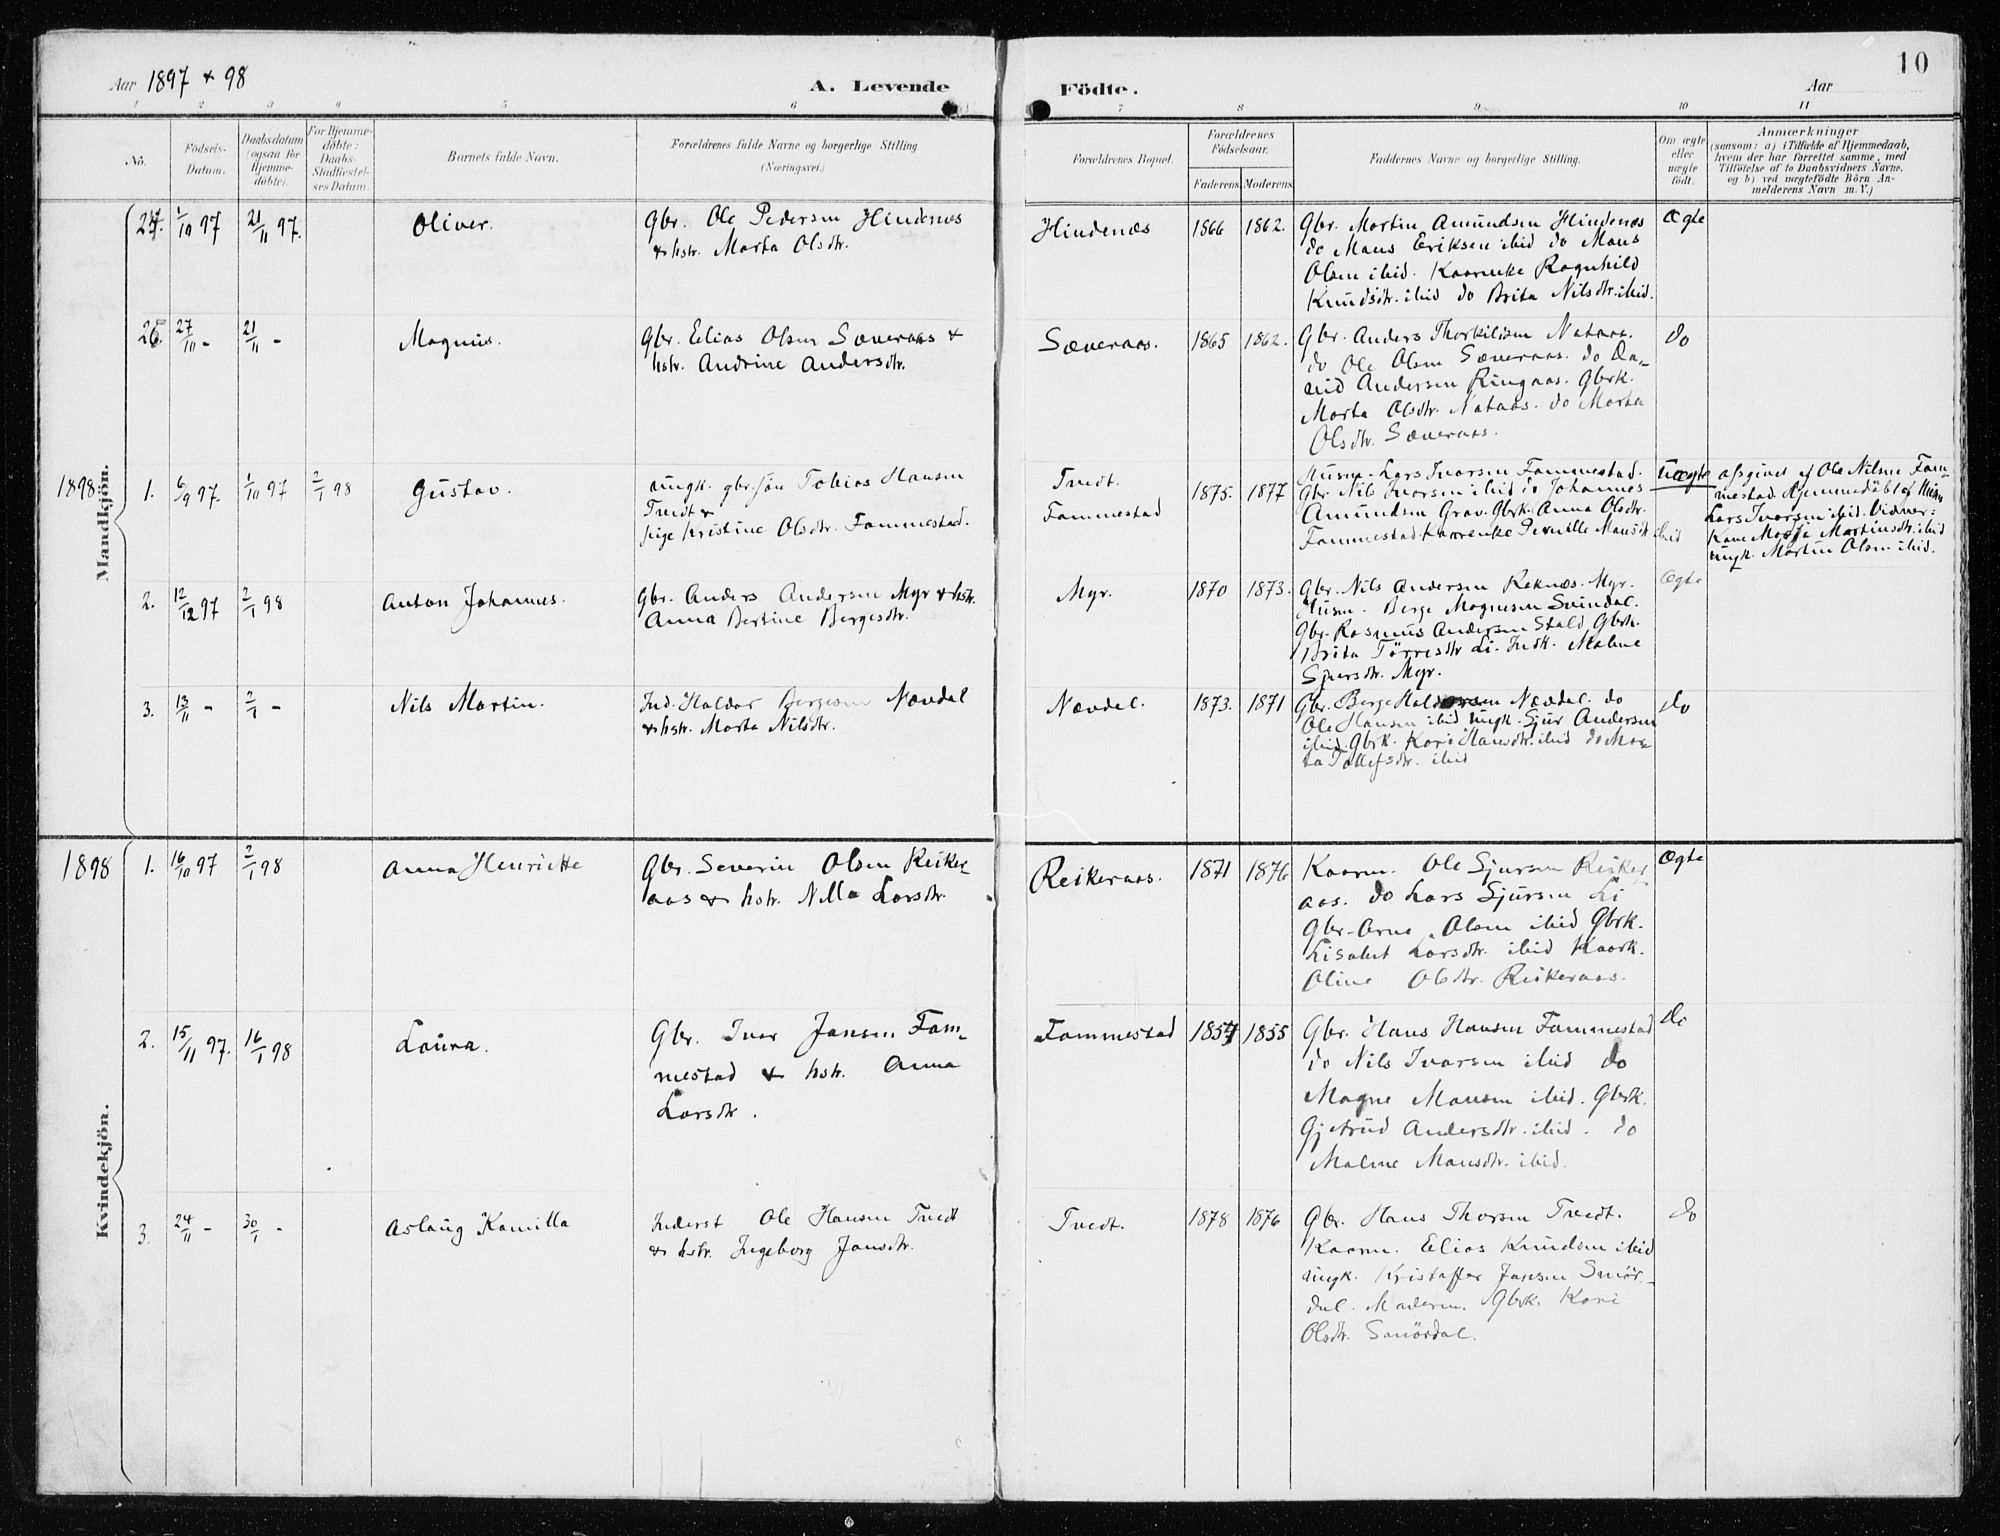 Aar 1897 + 98
A. Levende
Födte.
Aar
10
1 2 3 4 5 6 7 8 9 10 11
No.
Födsels-
Datum.
Daabsdatum
(ogsaa for
Hjemme-
döbte).
For Hjemme-
döbte:
Daabs-
Stadfæstel-
ses Datum.
Barnets fulde Navn.
Forældrenes fulde Navne og borgerlige Stilling
(Næringsvei.)
Forældrenes Bopæl.
Forældrenes
Födselsaar.
Faderens Moderens
Faddernes Navne og borgerlige Stilling.
Om ægte
eller
uægte
födt.
Anmærkninger
(saasom: a) i Tilfælde af Hjemmedaab,
hvem der har forrettet samme, med
Tilföielse af to Daabsvidners Navne,
og b) ved uægtefödte Börn An-
melderens Navn m. V.)
Mandkjön.
1/10 97 21/11 97.
Oliver.
Gbr. Ole Pedersen Hindenes
& hstr. Marta Olsdtr.
Hindenæs
1866 1862.
Gbr. Martin Amundsen Hindenæs
do Mans Eriksen ibid do Mans
Olsen ibid. Kaarenke Ragnhild
Knudsdtr. ibid do Brita Nilsdtr. ibid.
Ægte
26 27/10 - 21/11 -
Magnus.
Gbr. Elias Olsen Sæveraas &
hstr. Andrine Andersdtr.
Sæveraas.
1865 1862.
Gbr. Anders Thorkilsen Nataas.
do Ole Olsen Sæveraas. do Da-
vid Andersen Ringaas. Gbrk.
Marta Olsdtr. Nataas. do Marta
Olsdtr. Sæveraas.
do
1898.
1. 6/9 97. 1/10 97 2/1 98
Gustav.
ungk. gbr.sön Tobias Hansen
Tvedt &
pige Kristine Olsdtr. Fammestad.
Tvedt.
Fammestad
1875. 1877
Husm. Lars Ivarsen Fammestad.
Gbr. Nils Ivarsen ibid do Johannes
Amundsen Grav. Gbrk. Anna Olsdtr.
Fammestad. Kaarenke Pernille Mansdtr ibid
Uægte
afgivet af Ole Nilsen Fam-
mestad. Hjemmedöbt af Husm
Lars Ivarsen ibid. Vidner:
Kone Martinsdtr. ibid
ungk. Martin Olsen ibid.
2. 12/12 97 2/1 98
Anton Johannes.
Gbr. Anders Andersen Myr & hstr.
Anna Bertine Bergesdtr.
Myr.
1870 1873.
Gbr. Nils Andersen Reknæs. Myr.
Husm. Berge Magnesen Svindal.
Gbr. Rasmus Andersen Stald Gbrk.
Brita Törresdtr Li. Indk. Malene
Sjursdtr. Myr.
Ægte
3. 13/11 - 2/1 -
Nils Martin.
Ind. Haldor Bergesen Nævdal
& hstr. Marta Nilsdtr.
Nævdal.
1873. 1871
Gbr. Berge Haldorsen Nævdal. do
Ole Hansen ibid ungk. Sjur Andersen
ibid. Gbrk. Kari Hansdtr. ibid do Mar-
ta Tollefsdtr. ibid
do
Kvindekjön.
1898
1. 16/10 97 2/1 98
Anna Henriette
Gbr. Severin Olsen Reiker-
aas & hstr. Nilla Larsdtr.
Reikeraas.
1871 1876
Kaarm. Ole Sjursen Reiker-
aas. do Lars Sjursen Li
Gbr. Arne Olsen ibid Gbrk.
Lisabet Larsdtr. ibid Kaark.
Oline Olsdtr. Reikeraas.
Ægte
2. 15/11 97. 16/1 98
Laura.
Gbr. Ivar Jansen Fam-
mestad & hstr. Anna
Larsdtr.
Fammestad
1855
Gbr. Hans Hansen Fammestad
do Nils Ivarsen ibid do
Magne Mansen ibid. Gbrk.
Gjetrud Andersdtr. ibid. do
Malene Mansdtr. ibid.
do
3. 24/11 - 30/1 -
Aslaug Kamilla
Inderst Ole Hansen Tvedt
& hstr. Ingeborg Jansdtr.
Tvedt.
1878 1876
Gbr. Hans Thorsen Tvedt.
Kaarm. Elias Knudsen ibid
ungk. Kristaffer Jansen Smör-
dal. Moderen. Gbrk. Kari
Olsdtr. Smördal.
do